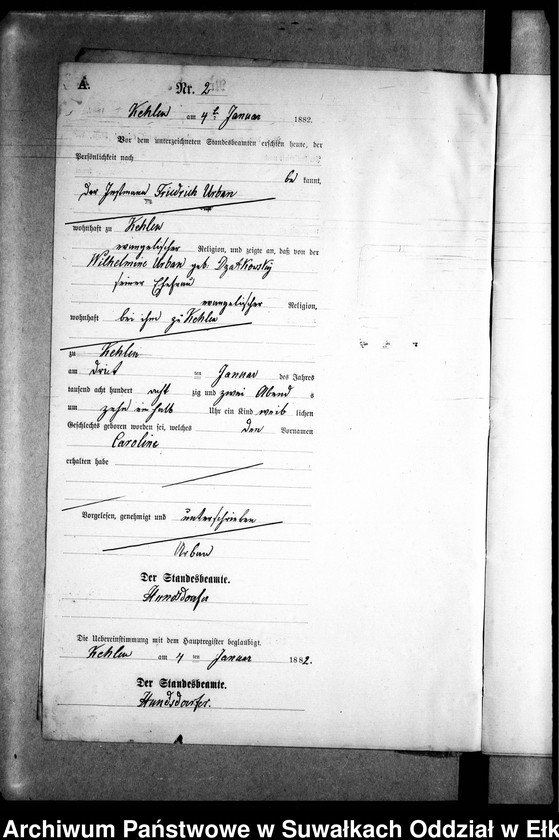 A.
Nr. 2
Kehlen am 4ten Januar 1882.
Vor dem unterzeichneten Standesbeamten erschien heute, der
Persönlichkeit nach
be kannt,
der Instmann Friedrich Urban
wohnhaft zu Kehlen
evangelischer Religion, und zeigte an, daß von der
Wilhelmine Urban geb. Dzatkowsky
seiner Ehefrau
evangelischer Religion,
wohnhaft bei ihm zu Kehlen
zu Kehlen
am drit ten Januar des Jahres
tausend acht hundert acht zig und zwei Abend s
um zehn ein halb Uhr ein Kind weib lichen
Geschlechts geboren worden sei, welches den Vornamen
Caroline
erhalten habe
Vorgelesen, genehmigt und unterschrieben
Urban
Der Standesbeamte.
Hundsdoerfer
Die Uebereinstimmung mit dem Hauptregister beglaubigt.
Kehlen am 4 ten Januar 1882.
Der Standesbeamte.
Hundsdoerfer.
Archiwum Państwowe w Suwałkach Oddział w Ełk